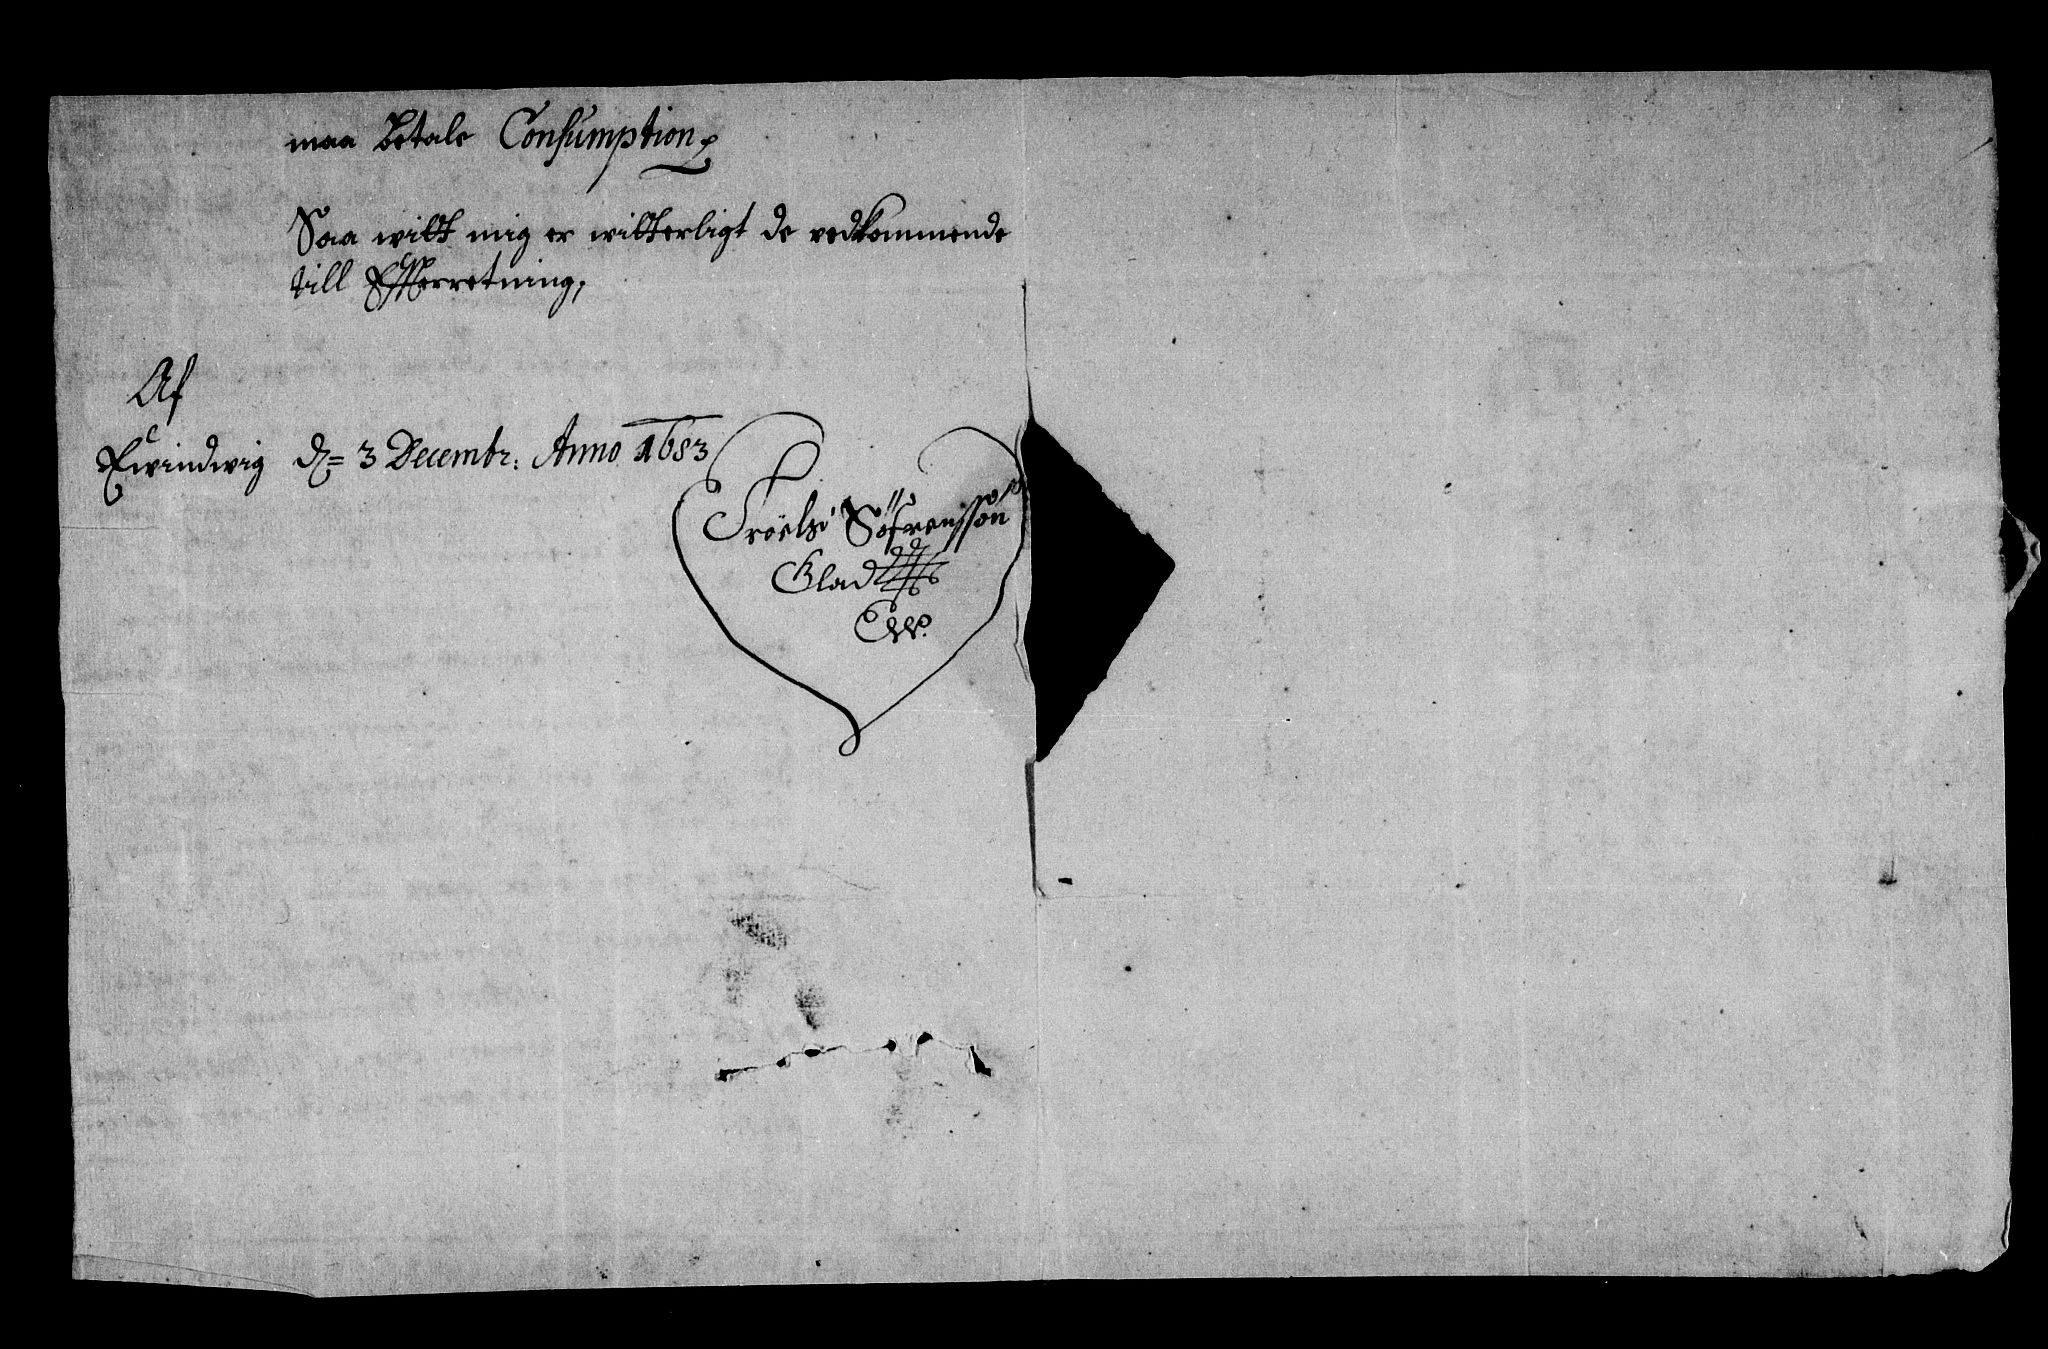 maa Betale Consumption
Saa witt mig er witterligt de vedkommende
till Efterretning,
Af
Ewindwig d= 3 Decembr: Anno 1683
Tröels Söfrensson
Glad